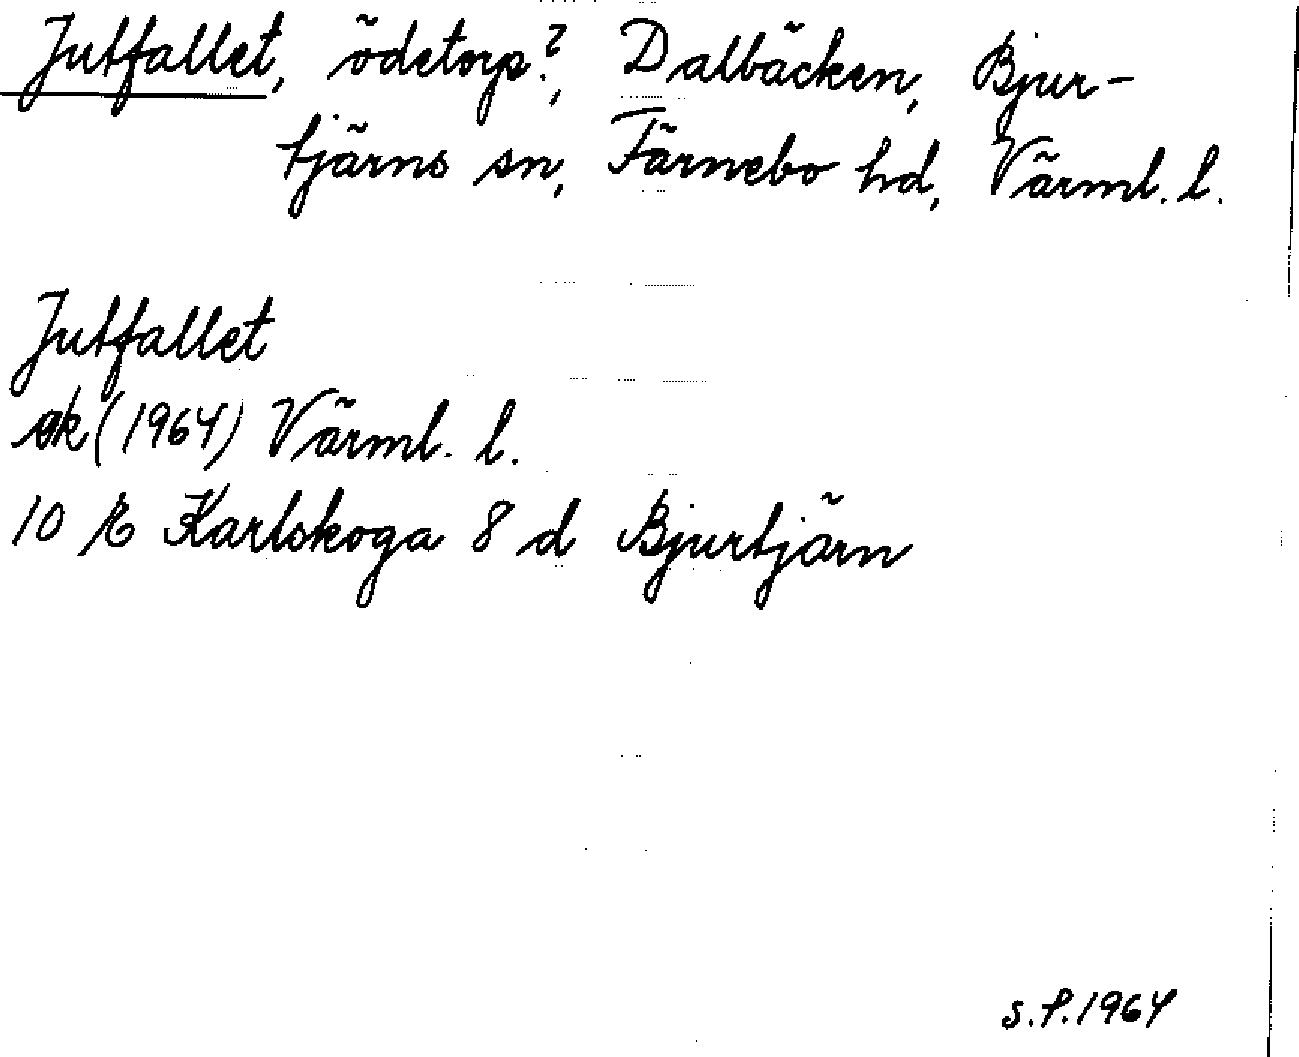 Jutfallet, ödetorp?, Dalbäcken, Bjur-
tjärns sn, Färnebo hd, Värml. l.
Jutfallet
ek (1964) Värml. l.
10 E Karlskoga 8 d Bjurtjärn
s.f. 1964